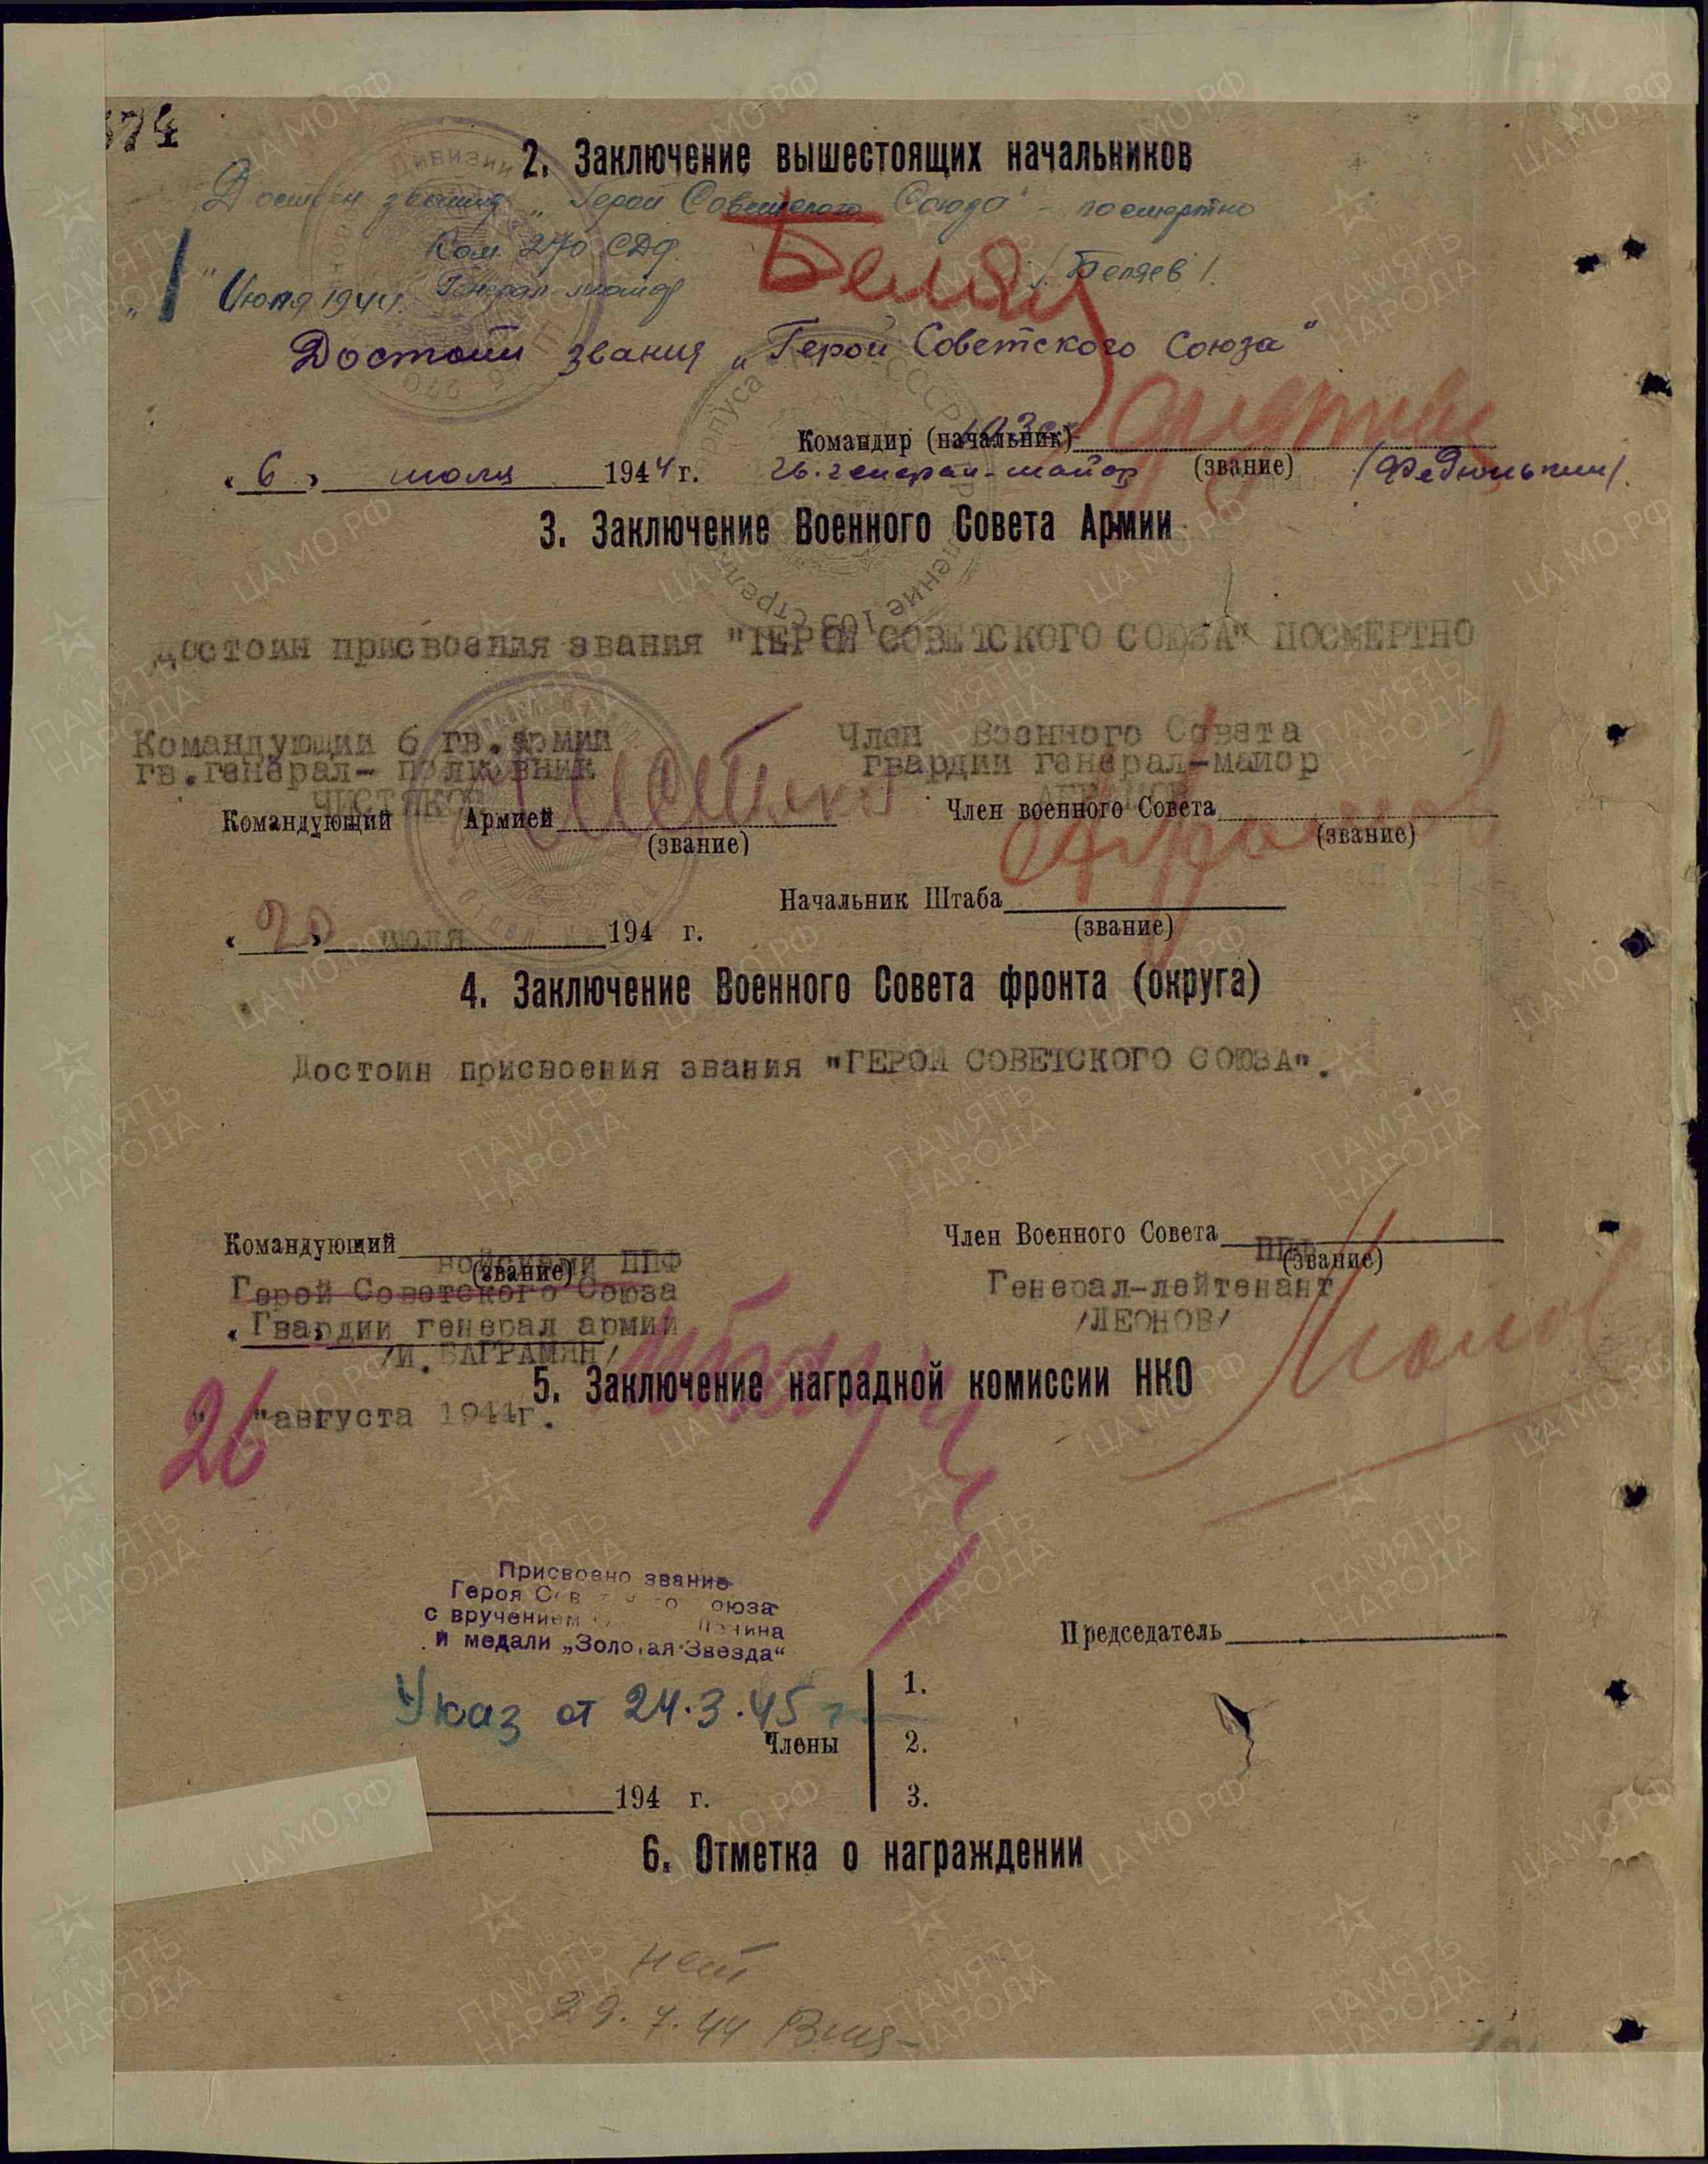 574
2. Заключение вышестоящих начальников
Достоин звания „Герой Советского Союза“ – посмертно
Ком. 270 СДд.
„1“ Июля 1944. Генерал-майор /Беляев/.
Достоин звания „Герой Советского Союза“
Командир (начальник)
„6“ июля 1944 г. генерал-майор (звание) /Федюнькин/.
3. Заключение Военного Совета Армии
достоин присвоения звания "ГЕРОЙ СОВЕТСКОГО СОЮЗА" ПОСМЕРТНО
Командующий 6 гв.армии Член Военного Совета
гв.генерал- полковник гвардии генерал-майор
ЧИСТЯКОВ
Командующий Армией Член военного Совета
(звание) (звание)
Начальник Штаба
(звание)
„20“ июля 194 г.
4. Заключение Военного Совета фронта (округа)
Достоин присвоения звания "ГЕРОЙ СОВЕТСКОГО СОЮЗА".
Командующий Член Военного Совета
войсками ППФ ППФ
(звание) (звание)
Герой Советского Союза Генерал-лейтенант
Гвардии генерал армии /ЛЕОНОВ/
/И. БАГРАМЯН/
5. Заключение наградной комиссии НКО
26 "августа 1944г.
Присвоено звание
Героя Союза
с вручением
и медали „Золотая Звезда“
Председатель
Указ от 24.3.45 г
Члены
1.
2.
3.
194 г.
6. Отметка о награждении
нет
29.7.44
ЦА МО РФ
ПАМЯТЬ НАРОДА